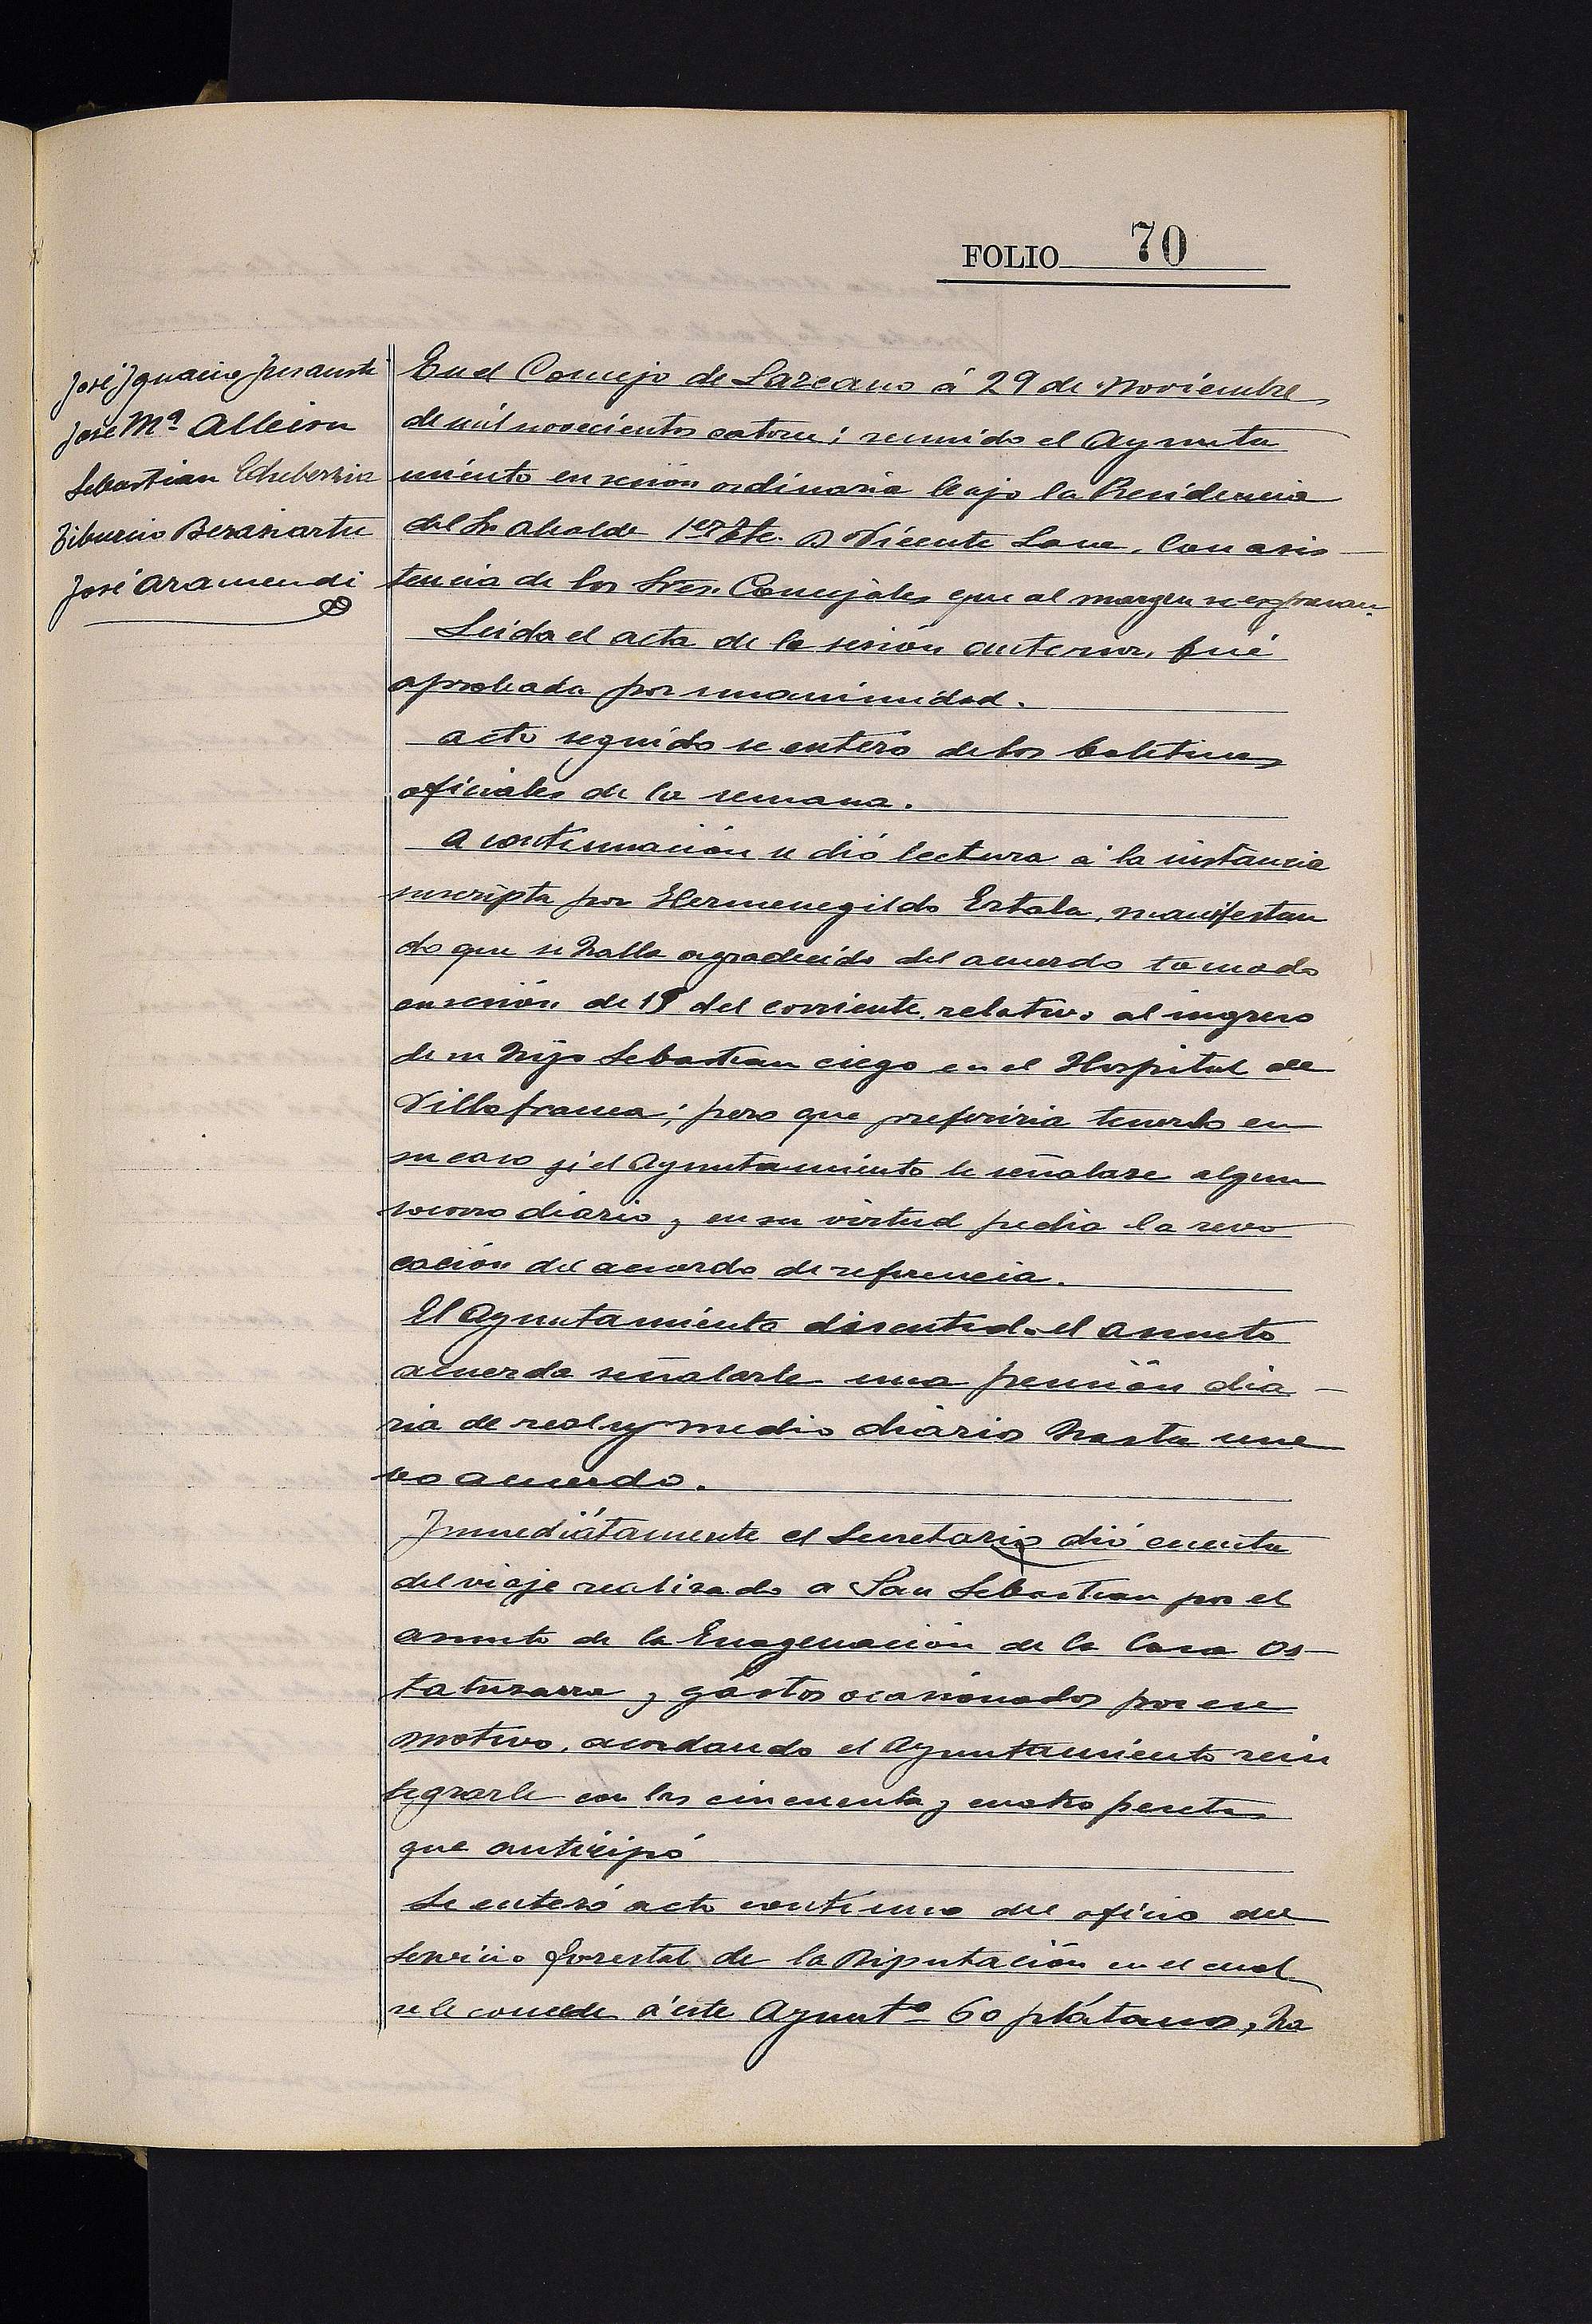 FOLIO 70
José Ignacio
José Mª Alleion
Sebastian Echeberria
Tiburcio Berasiartu
José Aramendi
En el Concejo de Lazcano á 29 de Noviembre
de mil novecientos catorce; reunido el Ayunta
miento en sesión ordinaria bajo la Presidencia
del Sr. Alcalde 1er Tte. D Vicente Lasa, con asis-
tencia de los Sres. Concejales que al margen se expresan.
Leida el acta de la sesión anterior, fué
aprobada por unanimidad.
Acto seguido se enteró de los boletines
oficiales de la semana.
A continuación se dió lectura á la instancia
suscripta por Hermenegildo Estala, manifestan
do que se halla agradecido del acuerdo tomado
en sesión de 15 del corriente, relativo al ingreso
de su hijo Sebastian ciego en el Hospital de
Villafranca; pero que preferiria tenerlo en
su casa si el Ayuntamiento le señalase algun
socorro diario y en su virtud pedia la revo
cación del acuerdo de referencia.
El Ayuntamiento discutido el asunto
acuerda señalarle una pensión dia-
ria de real y medio diario hasta nue
vo acuerdo.
Inmediátamente el Secretario dió cuenta
del viaje realizado a San Sebastian por el
asunto de la Enagenación de la Casa Os-
tatuzarra y gastos ocasionados por ese
motivo, acordando el Ayuntamiento rein
tegrarle con las cincuenta y cuatro pesetas
que anticipó
Se enteró acto continuo del oficio del
Servicio forestal de la Diputación en el cual
se le concede á este Ayuntº 60 plátanos, ha